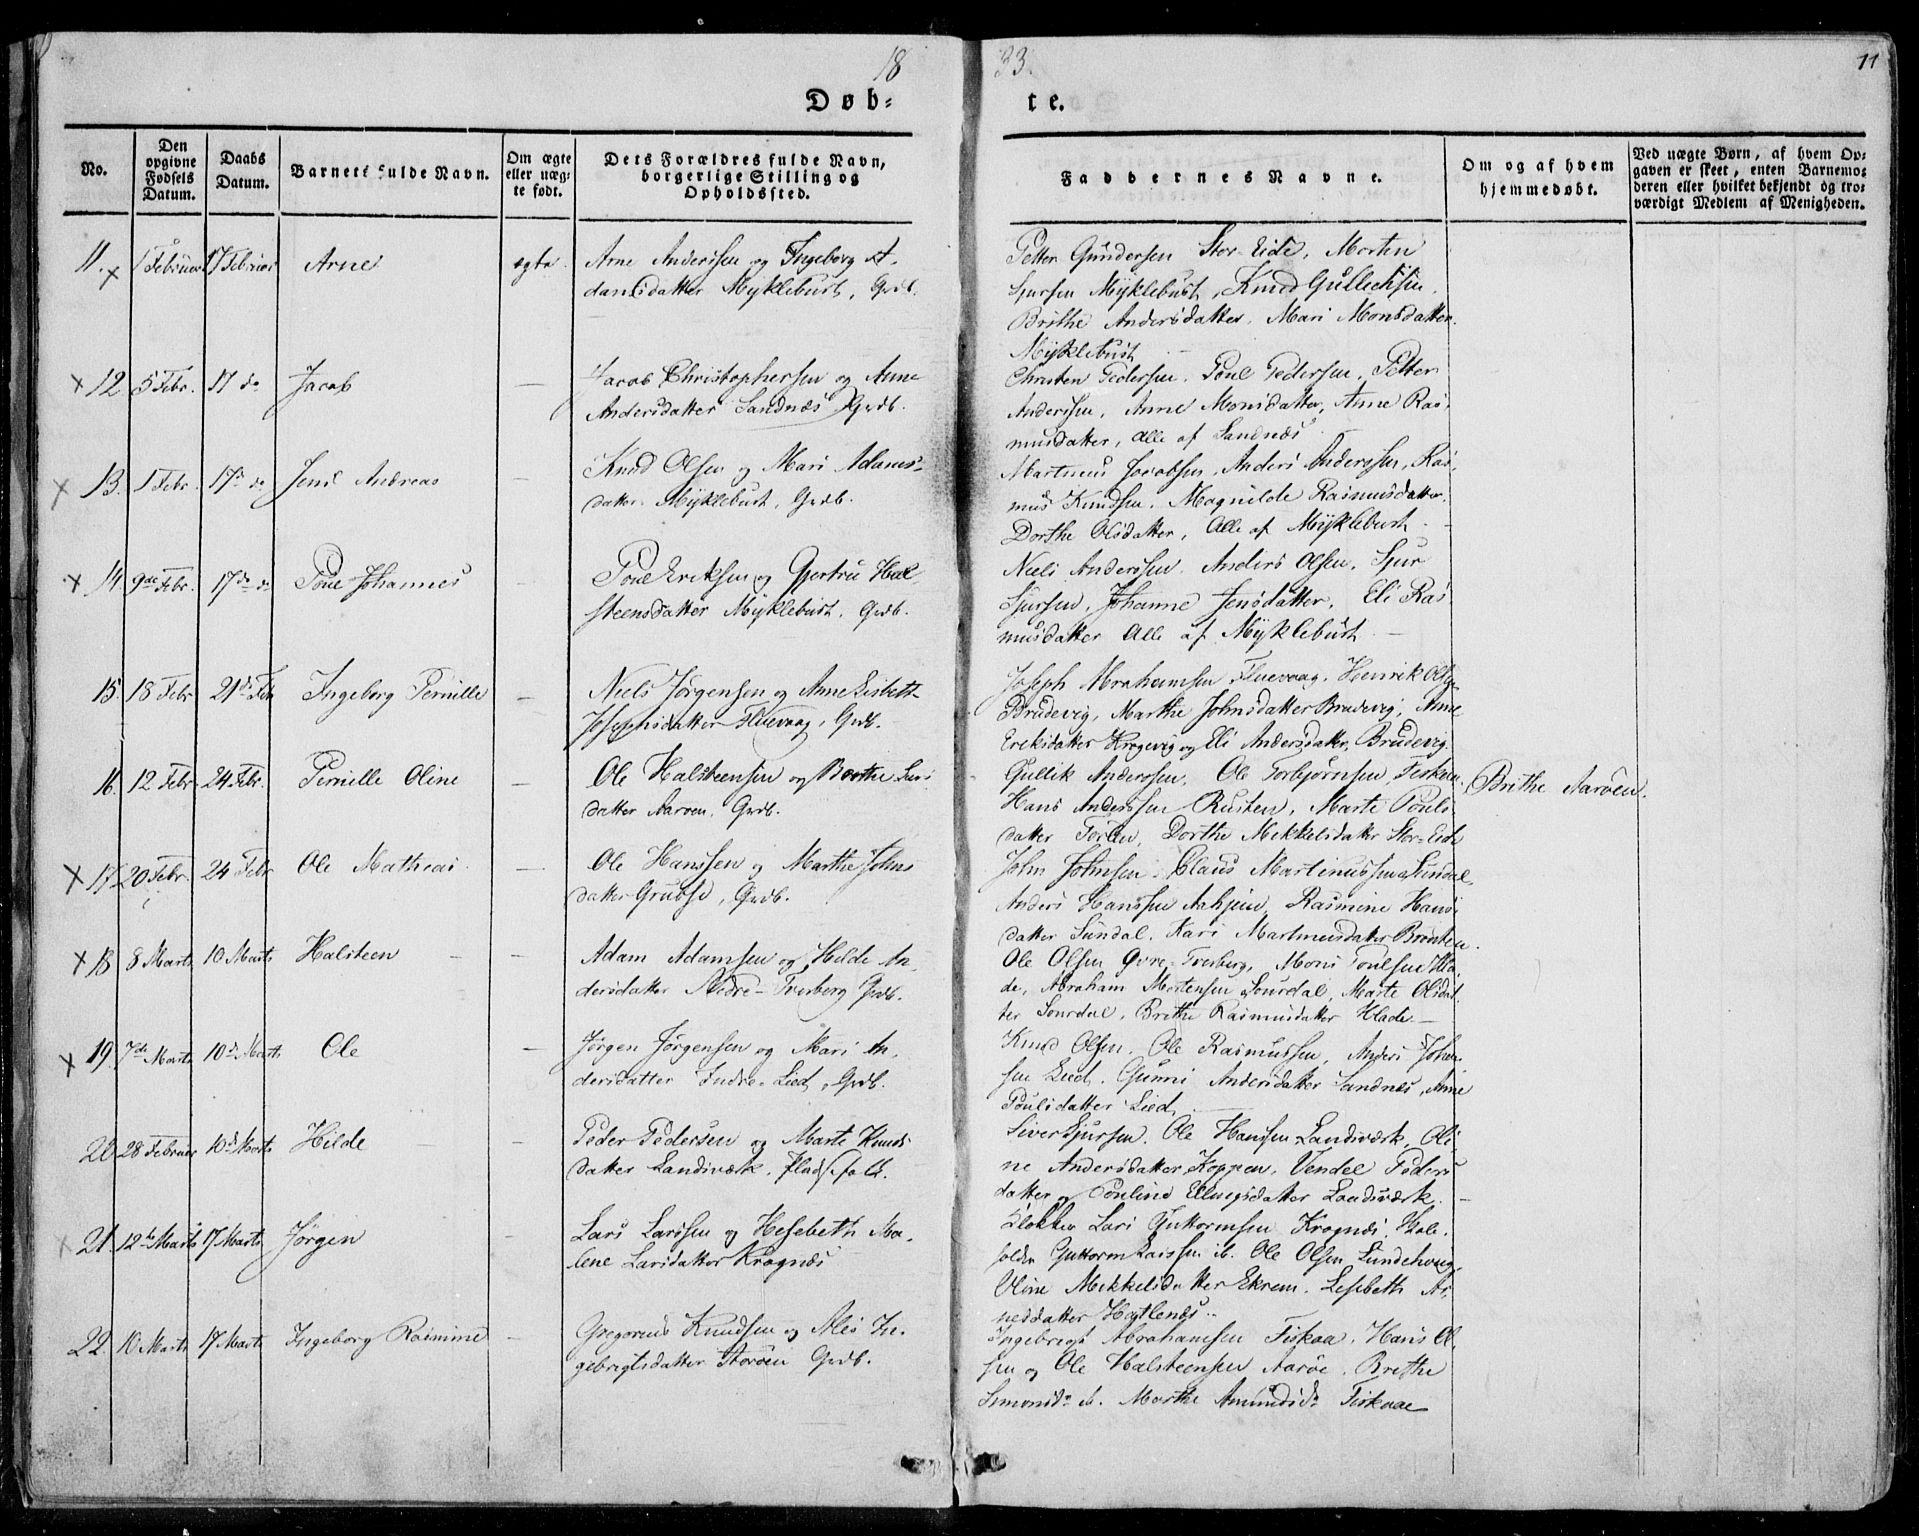 18
33.
11
Døb-
te.
No.
Den opgivne Fødsels Datum.
Daabs Datum.
Barnets fulde Navn.
Om ægte eller uæg-te født.
Dets Forældres fulde Navn, borgerlige Stilling og Opholdssted.
Faddernes Navne.
Om og af hvem hjemmedøbt.
Ved uægte Børn, af hvem Op-gaven er skeet, enten Barnemo-deren eller hvilket bekjendt og tro-værdigt Medlem af Menigheden.
11. x 1 Februar 17 Februar Arne ægte.
Arne Anderssen og Ingeborg A-
damsdatter Myklebust, Grdb.
Petter Gundersen Stor-Eide, Morten
Sjursen Myklebust, Knud Gullechsen,
Brithe Andersdatter, Mari Monsdatter
Myklebust
x 12 5 Febr. 17 do Jacob —
Jacob Christophersen og Anne
Andersdatter Sandnæs Grdb.
Christen Pedersen, Poul Pedersen, Petter
Anderssen, Anne Monsdatter, Anne Ras-
musdatter, alle af Sandnæs
x 13. 1 Febr. 17de do Jens Andreas —
Knud Olsen og Mari Adams-
datter Myklebust, Grdb.
Martinus Jacobsen, Anders Anderssen, Ras-
mus Knudsen, Magnilde Rasmusdatter,
Dorthe Olsdatter, Alle af Myklebust.
x 14 9de Febr. 17de do Poul Johannes —
Poul Eriksen og Gjertru Hal-
steensdatter Myklebust, Grdb.
Niels Anderssen, Anders Olsen, Sjur
Sjursen, Johanne Jensdatter, Eli Ras-
musdatter Alle af Myklebust —
15. 18 Febr 21de Feb Ingeborg Pernille —
Niels Jørgensen og Anne Lisbeth
Josephsdatter Fluevaag, Grdb.
Joseph Abrahamsen Fluevaag, Henrik Olsen
Brudevig, Marthe Johnsdatter Brudevig, Anne
Eriksdatter Krogevig og Eli Andersdatter, Brudevig.
16. 12 Febr 24 Febr. Pernille Oline —
Ole Halsteensen og Berthe Lars
datter Aarøen, Grdb.
Gullik Anderssen, Ole Torbjørnsen, Fiskaa
Hans Anderssen Rusten, Marte Pouls-
datter, Dorthe Mikkelsdatter Stor-Eide
Brithe Aarøen.
x 17 20 Febr. 24 Febr Ole Mathias. —
Ole Hanssen og Marthe Johns
datter Grubse, Grdb.
John Johnsen, Claus Martinussen Sundal,
Anders Hanssen, Rasmine Hans-
datter Sundal, Kari Martinusdatter.
x 18 8 Marts 10 Marts Halsteen —
Adam Adamsen og Hilde An-
dersdatter Nedre-Tverberg Grdb.
Ole Olsen Øvre-Tverberg, Mons Poulsen Hla-
de, Abraham Mortensen Sourdal, Marte Olsdat-
ter Sourdal, Brithe Rasmusdatter Hlade —
x 19. 7de Marts 10de Marts Ole —
Jørgen Jørgensen og Mari An-
dersdatter Indre-Lied, Grdb.
Knud Olsen, Ole Rasmussen, Anders Johan-
sen Lied, Gunni Andersdatter Sandnæs, Anne
Poulsdatter Lied,
20 28 Februar 10de Marts Hilde —
Peder Pedersen og Marte Knuds
datter Landsværk, Pladsefolk.
Siver Sjursen, Ole Hanssen Landsværk, Oli-
ne Andersdatter Koppen, Vendel Peders
datter og Pouline Ellingsdatter Landsværk. —
x 21. 12te Marts 17 Marts Jørgen —
Lars Larssen og Hesebeth Ma-
lene Larsdatter Krognæs
Klokker Lars Guttormsen Krognæs, Skole-
holder Guttorm Larssen ib. Ole Olsen Sundehoug,
Oline Mikkelsdatter Ekrem, Lesebeth Ar-
nesdatter Hatlenæs.
22. 10 Marts 17 Marts Ingeborg Rasmine —
Gregorius Knudsen og Ales In-
gebrigtsdatter Storøen Grdb.
Ingebrigt Abrahamsen Fiskaa, Hans Ol-
sen og Ole Halsteensen Aarøe, Brethe
Simonsdr ib. Marthe Amundsdr Fiskaae